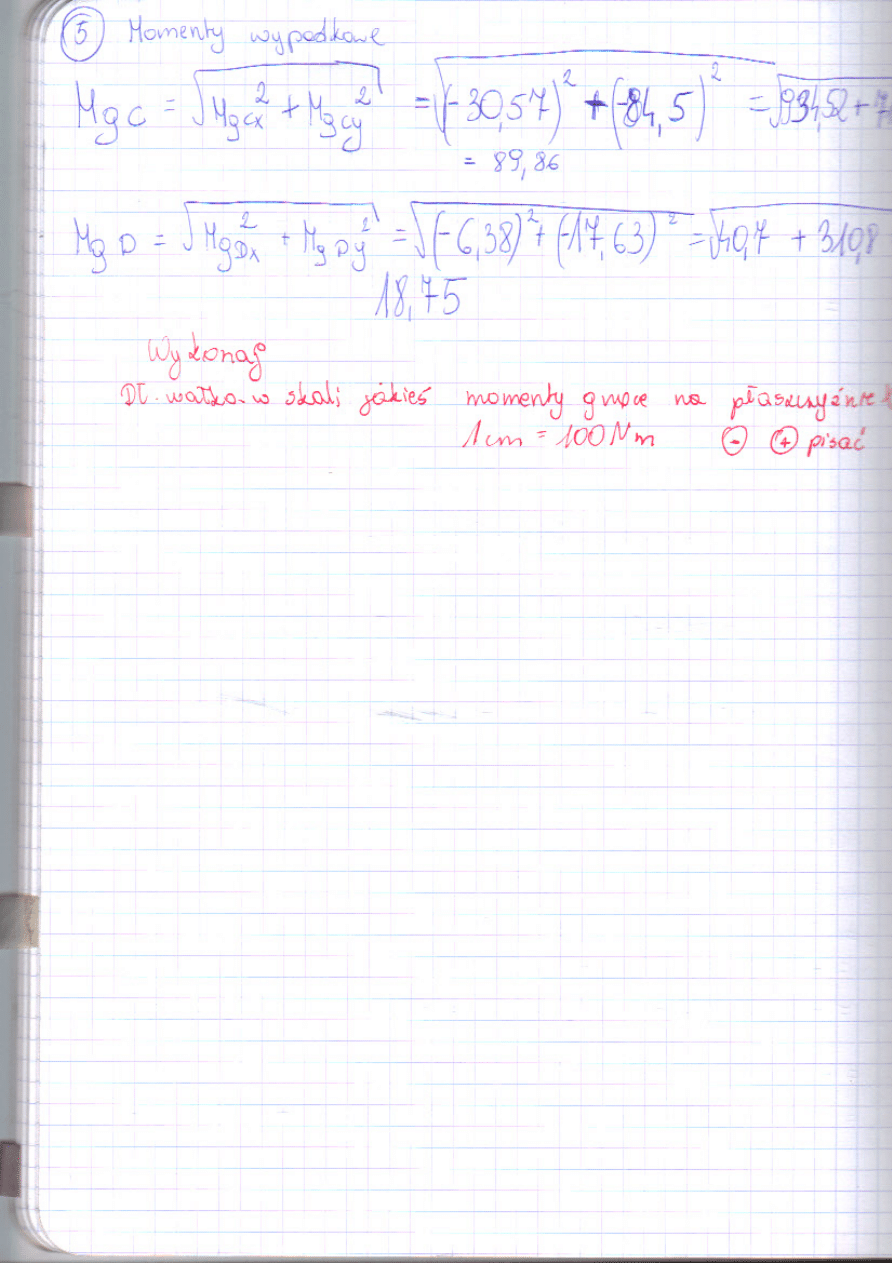 5 Momenty wypadkowe
MgC = √(Mgcx² + Mgcy²) = √((-30,57)² + (-84,5)²) = √(934,52 + 7
= 89,86
MgD = √(MgDx² + MgDy²) = √((-6,38)² + (-17,63)²) = √(40,7 + 310,8
18,75
Wykonaj
Dł. wałka w skali jakieś momenty gnące na płaszczyźnie
1 cm = 100 Nm (-) (+) pisać